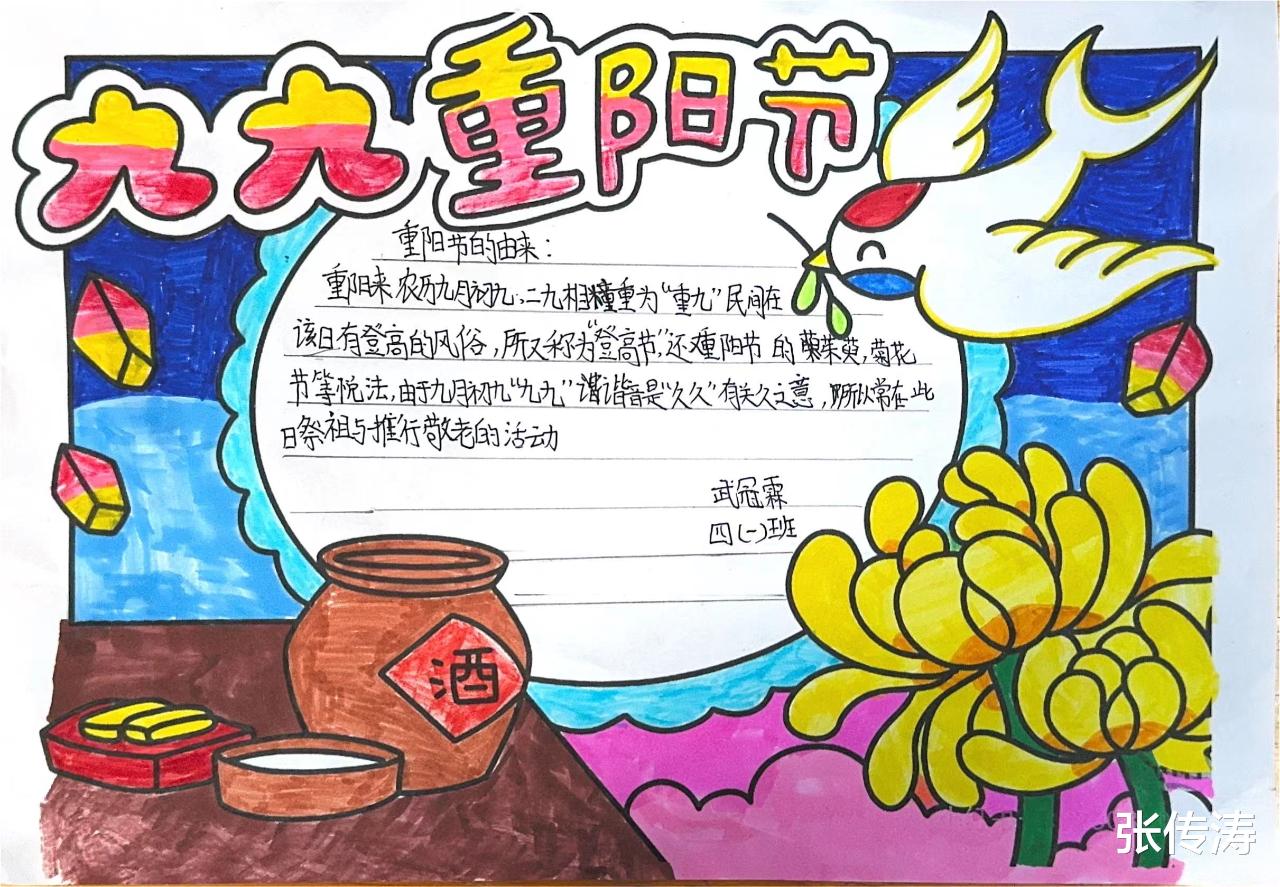 九九重阳节
重阳节的由来：
重阳来农历九月初九，二九相重为“重九”民间在
该日有登高的风俗，所又称为“登高节”，还重阳节的茱萸，菊花
节等悦法，由于九月初九“九九”谐音是“久久”有关久之意，所以常在此
日祭祖与推行敬老的活动
武冠霖
四(一)班
酒
张传涛